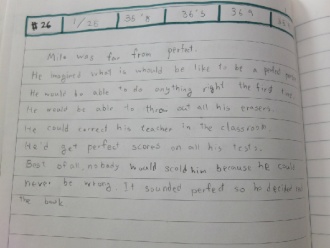 #26 1/28 35°8 36°5 36°9
Milo was far from perfect.
He imagined what is would be like to be a perfect
He would be able to do anything right the first time.
He would be able to throw out all his erasers.
He could correct his teacher in the classroom.
He'd get perfect scores on all his tests.
Best of all, nobody would scold him because he could
never be wrong. It sounded perfect so he decided
the book